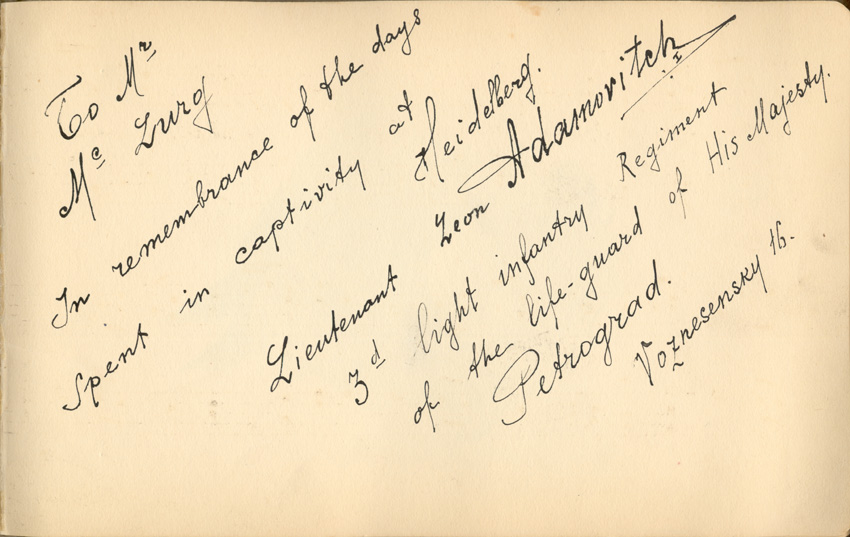 To Mr
Mc Lurg
In remembrance of the days
spent in captivity at Heidelberg.
Lieutenant Leon Adamovitch
3d light infantry Regiment
of the life-guard of His Majesty.
Petrograd.
Voznesensky 16.